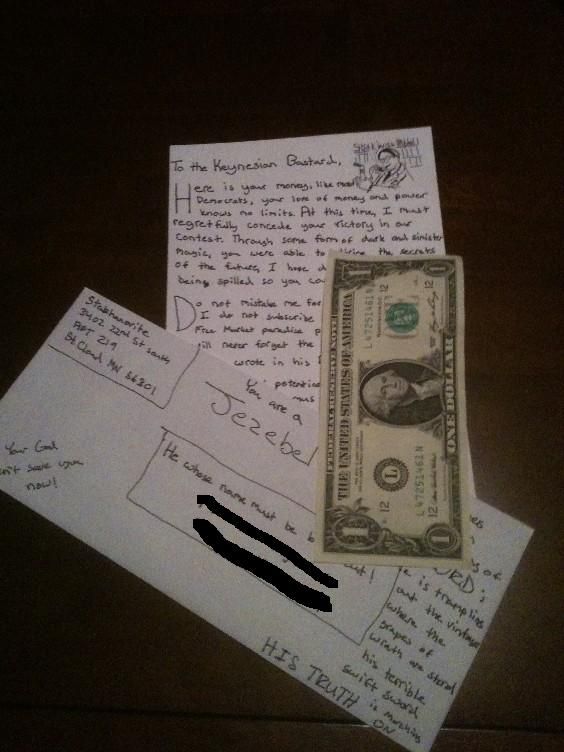 To the Keynesian Bastard,
Here is your money, like most
Democrats, your love of money and power
knows no limits. At this time, I must
regretfully concede your victory in our
contest. Through some form of dark and sinister
magic, you were able to divine the secrets
of the future, I hope
being spilled so you
Do not mistake me for
I do not subscribe
Free Market paradise
will never forget the
wrote in his
potential
You are a
must
Jezebel
Stakhanovite
3402 22nd St south
APT 219
St Cloud MN 56301
Your God
can't save you
now!
He whose name must be
out!
of
LORD;
He is trampling
out the vintage
where the
grapes of
wrath are stored
his terrible
swift sword
HIS TRUTH is marching
ON
FEDERAL RESERVE NOTE
THE UNITED STATES OF AMERICA
L 47251461 N
12
12
L
12
12
L 47251461 N
ONE DOLLAR
1
1
1
1